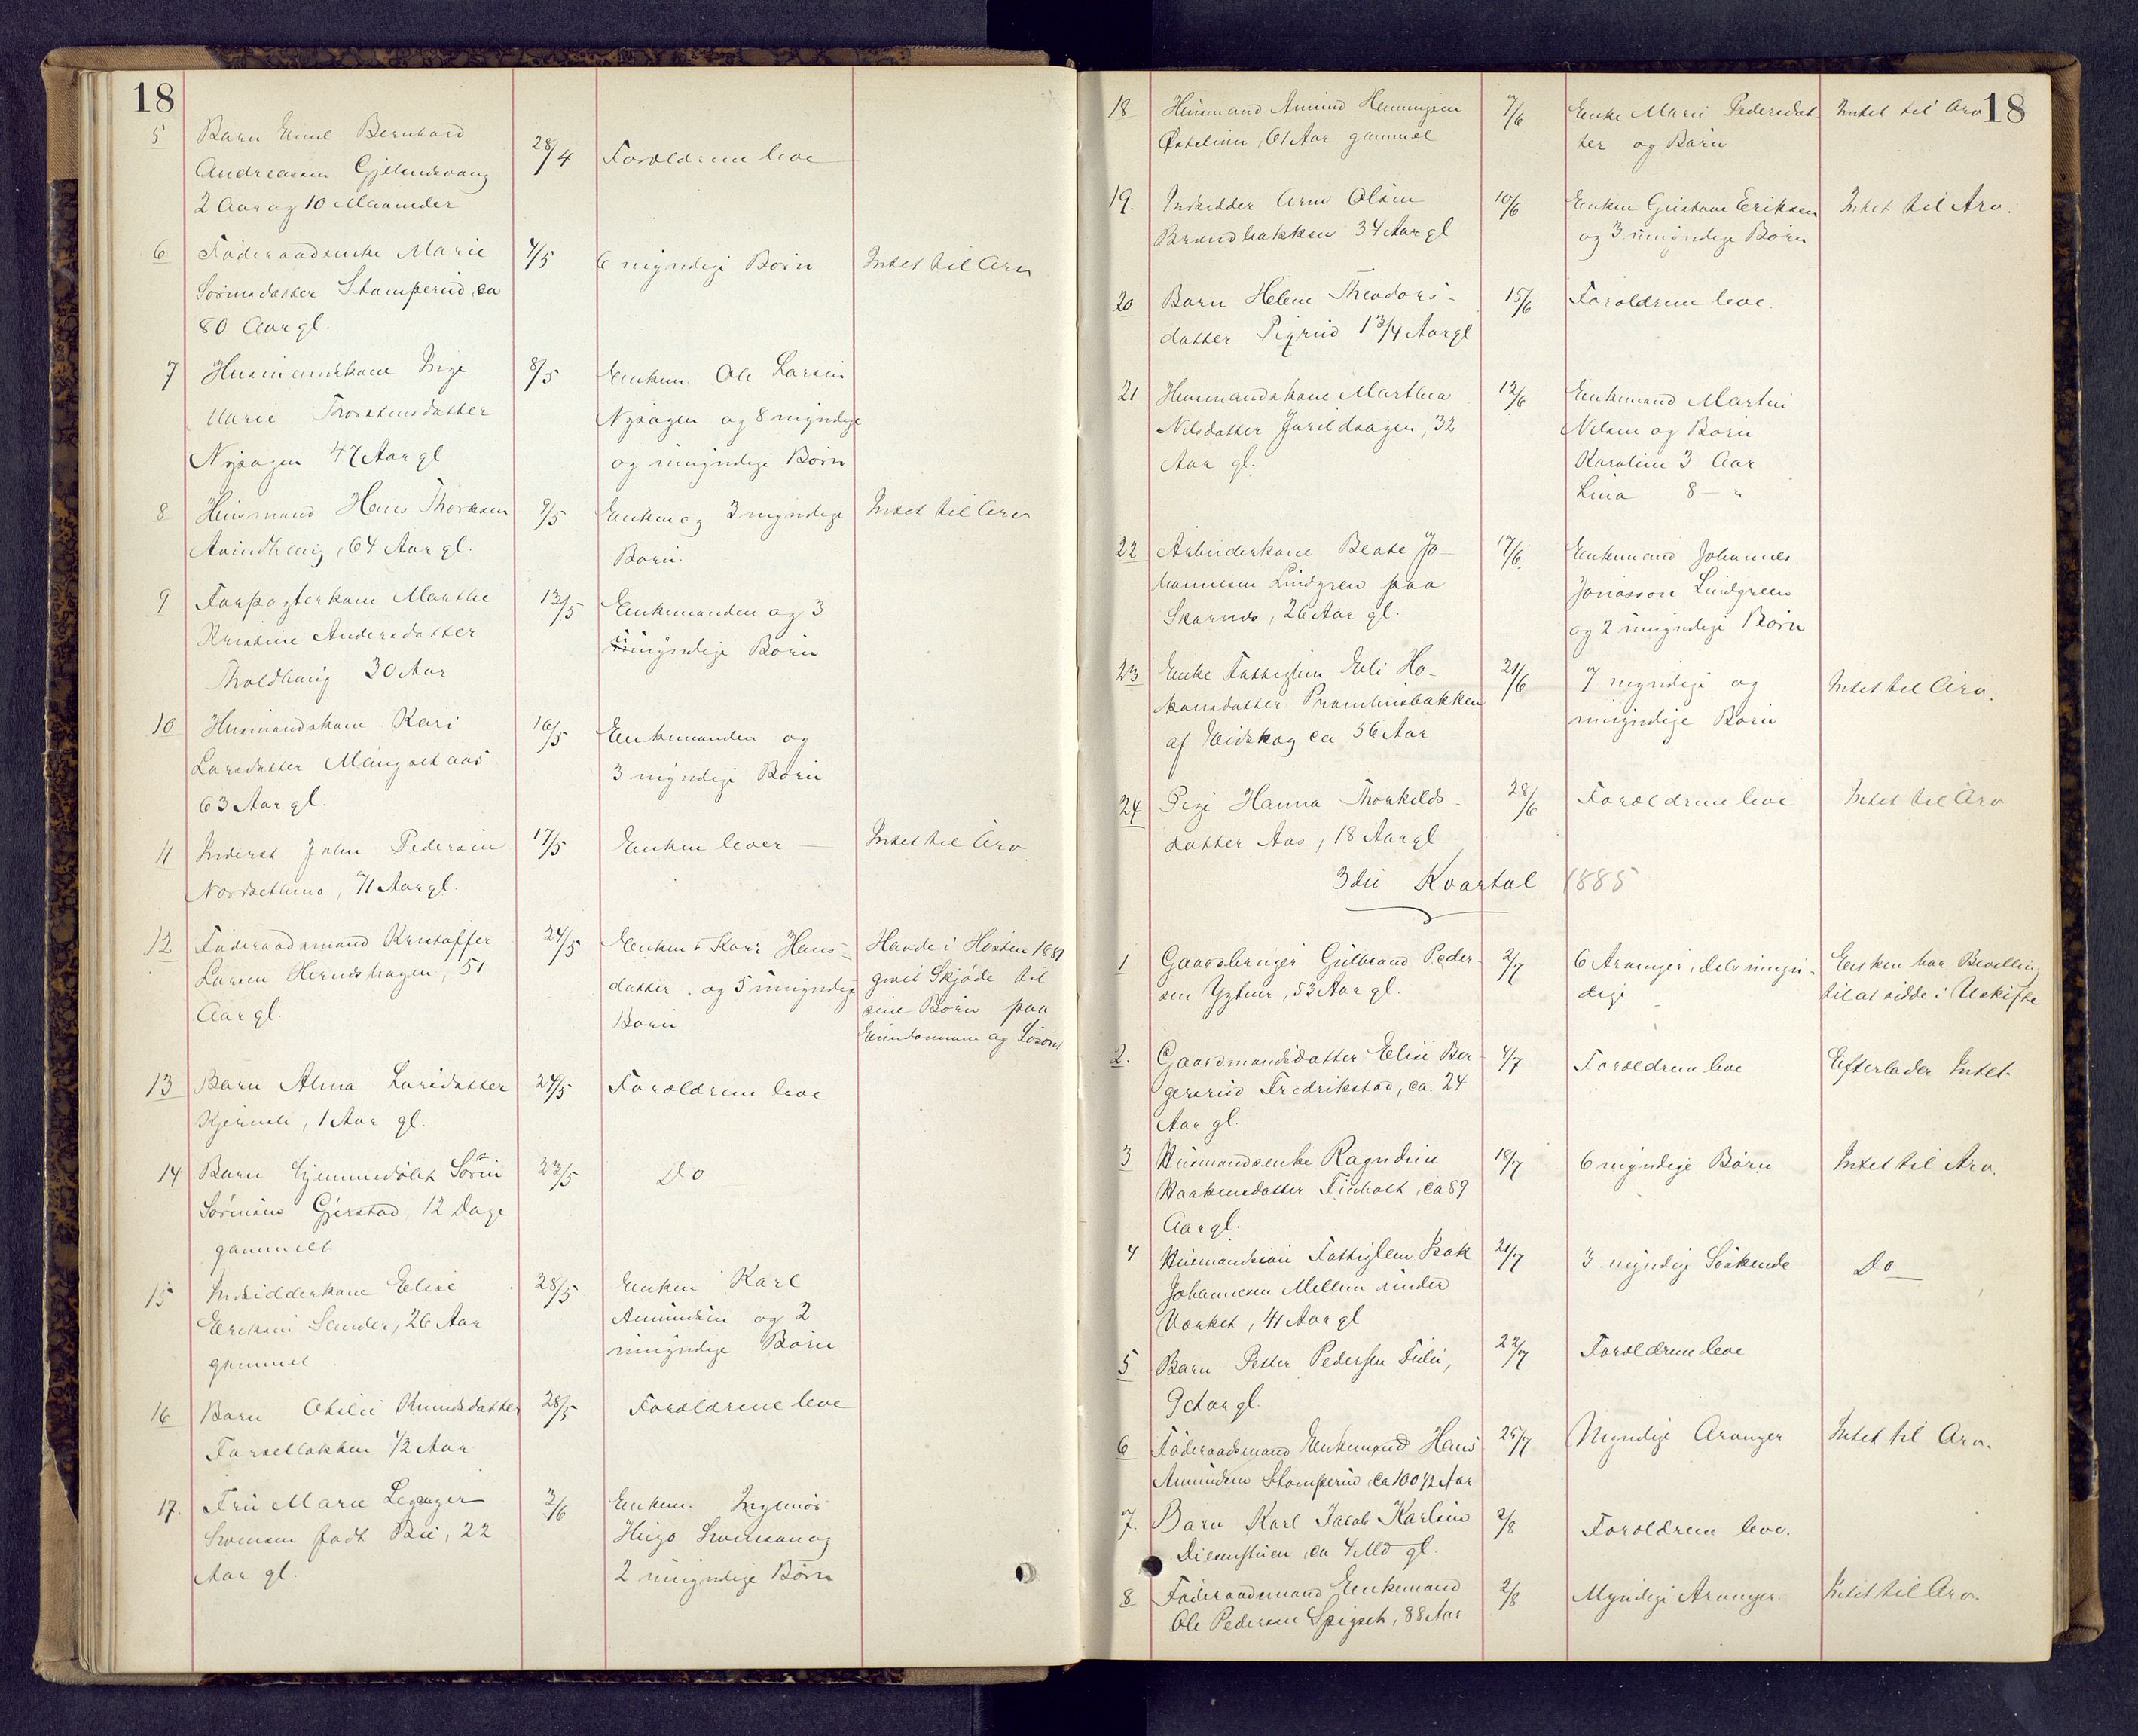 18
5 Barn Emil Bernhard
Andreassen Gjelundsvang
2 Aar og 10 Maaneder
28/4
Forældrene leve
6 Føderaadsenke Marie
Sørensdatter Stomperud, ca
80 Aar gl.
4/5
6 myndige Børn
Intet til Arv
7 Husmandskone Inge
Marie Thorstensdatter
Nysagen 47 Aar gl
8/5
Enkem. Ole Larsen
Nysagen og 8 myndige
og umyndige Børn
8 Husmand Hans Thorksen
Arindhaug, 64 Aar gl.
9/5
Enken og 3 myndige
Børn.
Intet til Arv
9 Forpagterkone Marthe
Kristine Andersdatter
Troldhaug 30 Aar
13/5
Enkemanden og 3
umyndige Børn
10 Husmandskone Kari
Larsdatter Mangset aas
63 Aar gl.
16/5
Enkemanden og
3 myndige Børn
11 Inderst John Pedersen
Nordsetmo, 71 Aar gl.
17/5
Enken lever —
Intet til Arv
12 Føderaadsmand Kristoffer
Larsen Herudshagen, 51
Aar gl.
24/5
Enken Kari Hans-
datter . og 5 umyndige
Børn
Havde i Høsten 1881
givet Skjøde til
sine Børn paa
Eiendommen og Løsøre
13 Barn Alma Larsdatter
Kjernli, 1 Aar gl.
24/5
Forældrene leve
14 Barn hjemmedøbt Søren
Sørensen Gjerstad, 12 Dage
gammelt
23/5
Do
15 Indsidderkone Elise
Eriksen Sander, 26 Aar
gammel
28/5
Enkem Karl
Amundsen og 2
umyndige Børn
16 Barn Otilie Knudsdatter
Forsetløkken 1/2 Aar
28/5
Forældrene leve
17. Fru Marie Leganger
Svensen født Bie, 22
Aar gl.
3/6
Enkem. Ingeniør
Hugo Svensen og
2 umyndige Børn
18
18 Husmand Amund Hemmingsen
Østelien, 61 Aar gammel
7/6
Enke Marie Pedersdat-
ter og Børn
Intet til Arv
19. Indsidder Arne Olsen
Brandbakken 34 Aar gl.
10/6
Enken Gustave Eriksen
og 3 umyndige Børn
Intet til Arv.
20 Barn Helene Theodors-
datter Pigrud 1 3/4 Aar gl
15/6
Forældrene leve.
21 Husmandskone Marthea
Nilsdatter Jurildsagen, 32
Aar gl.
12/6
Enkemand Martin
Nilsen og Børn
Karoline 3 Aar
Lina 8 — "
22 Arbeiderkone Beate Jo-
hannesen Lindgren paa
Skarnes, 26 Aar gl.
17/6.
Enkemand Johannes
Jonasson Lindgreen
og 2 umyndige Børn
23 Enke Fattiglem Eli Ho-
konsdatter Pramhusbakken
af Eidskog ca 56 Aar
21/6
7 myndige og
umyndige Børn
Intet til Arv.
24 Pige Hanna Thorkilds-
datter Aas, 18 Aar gl
28/6
Forældrene leve
Intet til Arv
3die Kvartal 1885
1 Gaardbruger Gulbrand Peder-
sen Ygtner, 53 Aar gl.
2/7
6 Arvinger, delv. umyn-
dige
Enken har Bevilling
til at sidde i Uskifte
2. Gaardmandsdatter Elise Ber-
gersrud Fredrikstad, ca. 24
Aar gl.
4/7
Forældrene leve
Efterlader Intet.
3 Husmandsenke Ragndine
Haakensdatter Finholt, ca 89
Aar gl.
18/7
6 myndige Børn
Intet til Arv.
4 Husmandssøn Fattiglem Isak
Johannesen Mellem under
Værket, 41 Aar gl
21/7
3 myndige Søskende
Do
5 Barn Petter Pedersen Fulu,
9 Aar gl.
22/7
Forældrene leve
6 Føderaadsmand Enkemand Hans
Amundsen Stomperud ca 100 1/2 Aar
25/7
Myndige Arvinger
Intet til Arv.
7. Barn Karl Jakob Karlsen
Disenstuen, ca 4 Md gl.
2/8
Forældrene leve.
8 Føderaadsmand Enkemand
Ole Pedersen Spigset, 88 Aar
2/8
Myndige Arvinger.
Intet til Arv.